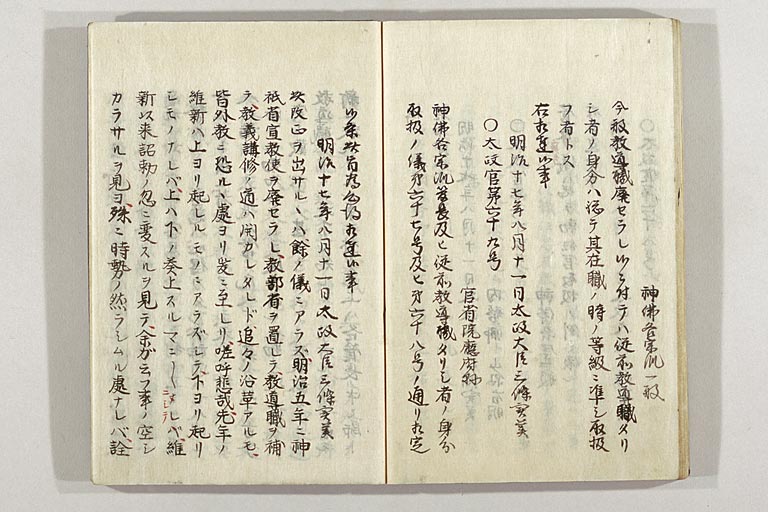 神佛各宗派一般
今般教導職廃セラレ候ニ付テハ従前教導職タリ
シ者ノ身分ハ総テ其在職ノ時ノ等級ニ準シ取扱
フ者トス
右相達候事
明治十七年八月十一日太政大臣三條實美
〇太政官第六十九号
官省院廳府縣
神佛各宗派管長及ヒ従前教導職タリシ者ノ身分
取扱ノ儀第六十七号及ヒ第六十八号ノ通リ相定
候条此旨為心得相達候事
明治十七年八月十一日太政大臣三條實美
次改正ヲ出サルヽハ餘ノ儀ニアラズ明治五年ニ神
祇省宣教使ヲ廃セラレ教部省ヲ置レテ教導職ヲ補
ラ教義講修ノ道ハ開カレタレド追々ノ沿革アルモ
皆外教ニ恐ルヽ處ヨリ発ニ至レリ嗟呼悲哉先年ノ
維新ハ上ヨリ起レルモノニアラズシテ下ヨリ起リ
シモノナレバ上ハ下ノ奏上スルマニ〱ナレバ維
新以来詔勅ノ忽ニ変スルヲ見テ余ガ云フ事ノ空シ
カラサルヲ見ヨ殊ニ時勢ノ然ラシムル處ナレバ詮